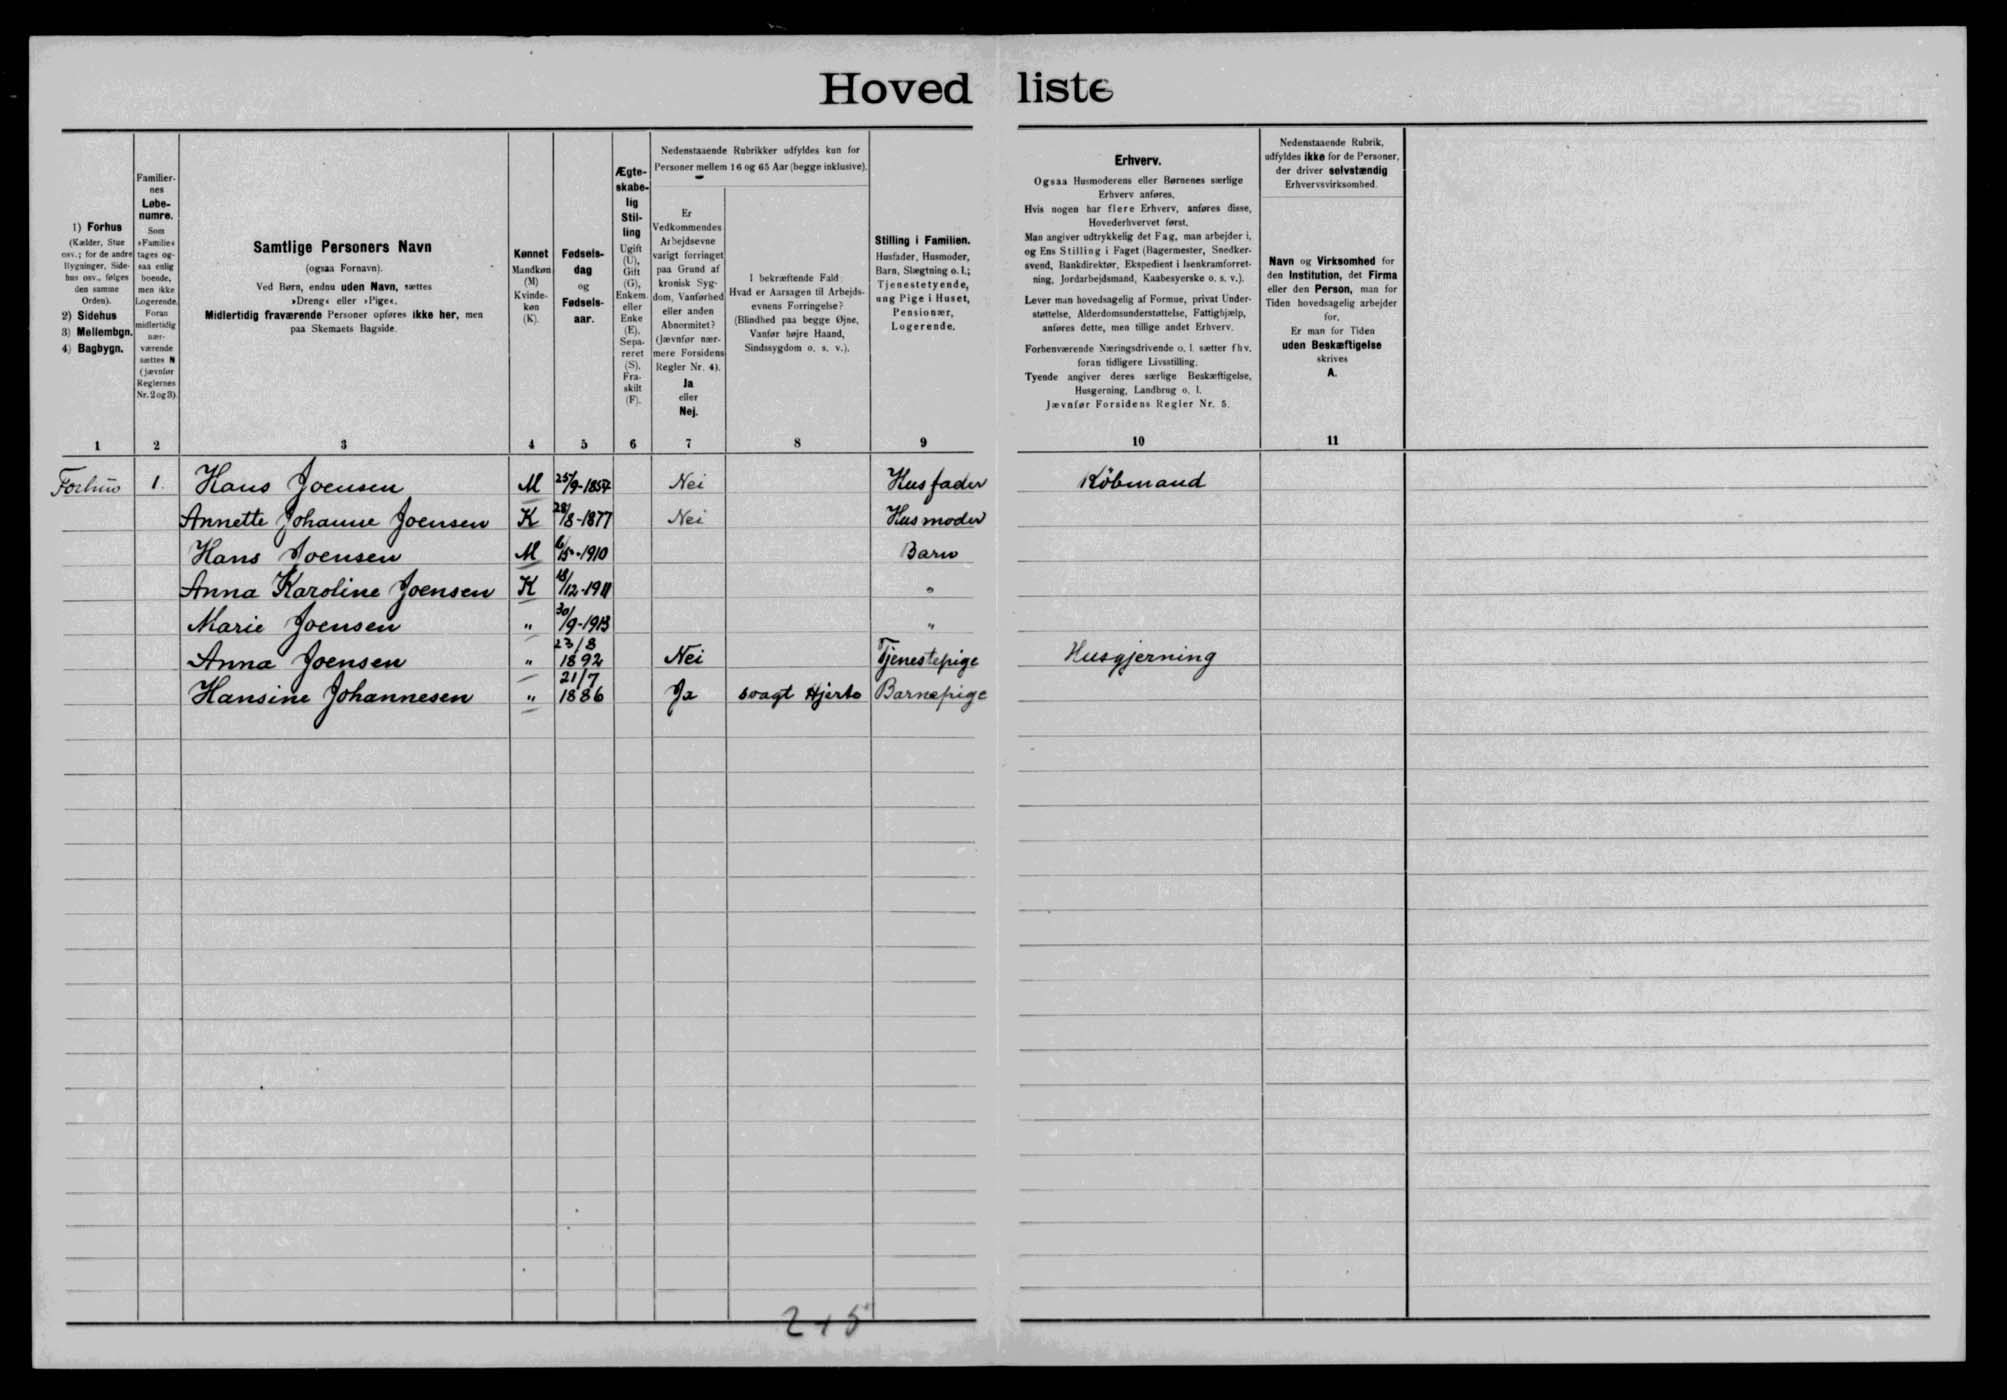 Hovedliste
1) Forhus
(Kælder, Stue
osv.; for de andre
Bygninger, Side-
hus osv., følges
den samme
Orden).
2) Sidehus
3) Mellembgn.
4) Bagbygn.
Familier-
nes
Løbe-
numre.
Som
»Familie«
tages og-
saa enlig
boende,
men ikke
Logerende.
Foran
midlertidig
nær-
værende
sættes N
(jævnfør
Reglernes
Nr. 2 og 3).
Samtlige Personers Navn
(ogsaa Fornavn).
Ved Børn, endnu uden Navn, sættes
»Dreng« eller »Pige«.
Midlertidig fraværende Personer opføres ikke her, men
paa Skemaets Bagside.
Kønnet
Mandkøn
(M)
Kvinde-
køn
(K).
Fødsels-
dag
og
Fødsels-
aar.
Ægte-
skabe-
lig
Stil-
ling
Ugift
(U),
Gift
(G),
Enkem.
eller
Enke
(E),
Sepa-
reret
(S),
Fra-
skilt
(F).
Nedenstaaende Rubrikker udfyldes kun for
Personer mellem 16 og 65 Aar (begge inklusive).
Er
Vedkommendes
Arbejdsevne
varigt forringet
paa Grund af
kronisk Syg-
dom, Vanførhed
eller anden
Abnormitet?
(Jævnfør nær-
mere Forsidens
Regler Nr. 4).
Ja
eller
Nej.
I bekræftende Fald
Hvad er Aarsagen til Arbejds-
evnens Forringelse?
(Blindhed paa begge Øjne,
Vanfør højre Haand,
Sindssygdom o. s. v.).
Stilling i Familien.
Husfader, Husmoder,
Barn, Slægtning o. l.;
Tjenestetyende,
ung Pige i Huset,
Pensionær,
Logerende.
Erhverv.
Ogsaa Husmoderens eller Børnenes særlige
Erhverv anføres.
Hvis nogen har flere Erhverv, anføres disse,
Hovederhvervet først.
Man angiver udtrykkelig det Fag, man arbejder i,
og Ens Stilling i Faget (Bagermester, Snedker-
svend, Bankdirektør, Ekspedient i Isenkramforret-
ning, Jordarbejdsmand, Kaabesyerske o. s. v.).
Lever man hovedsagelig af Formue, privat Under-
støttelse, Alderdomsunderstøttelse, Fattighjælp,
anføres dette, men tillige andet Erhverv.
Forhenværende Næringsdrivende o. l. sætter fhv.
foran tidligere Livsstilling.
Tyende angiver deres særlige Beskæftigelse,
Husgerning, Landbrug o. l.
Jævnfør Forsidens Regler Nr. 5.
Nedenstaaende Rubrik,
udfyldes ikke for de Personer,
der driver selvstændig
Erhvervsvirksomhed.
Navn og Virksomhed for
den Institution, det Firma
eller den Person, man for
Tiden hovedsagelig arbejder
for.
Er man for Tiden
uden Beskæftigelse
skrives
A.
1 2 3 4 5 6 7 8 9 10 11
Forhus 1. Hans Joensen M 25/9-1857 Nei Husfader Købmand
Annette Johanne Joensen K 28/8-1877 Nei Husmoder
Hans Joensen M 6/5-1910 Barn
Anna Karoline Joensen K 18/12-1911 "
Marie Joensen " 30/9-1913 "
Anna Joensen " 23/8 1892 Nei Tjenestepige Husgjerning
Hansine Johannesen " 21/7 1886 Ja svagt Hjerte Barnepige
2+5